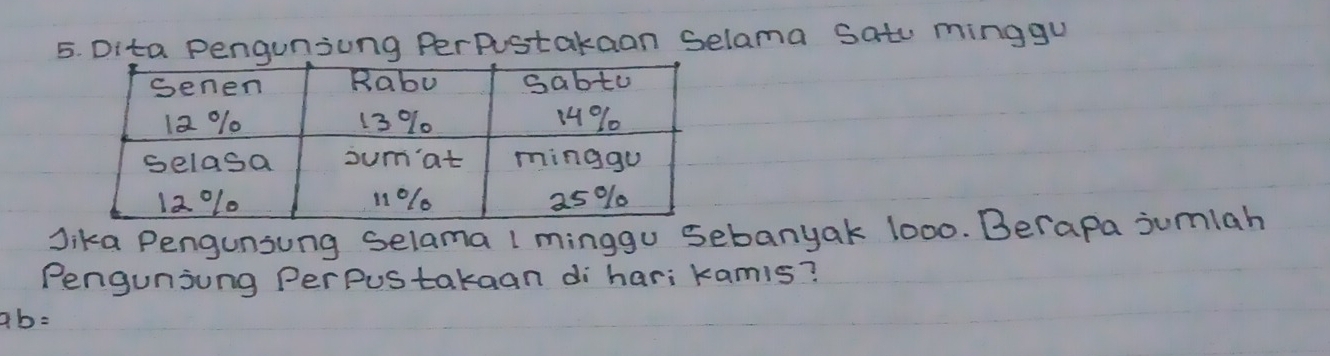 5. Dita Pengunjung Perpustakaan Selama Satu minggu
Senen Rabu Sabtu
12% 13% 14%
Selasa jum'at minggu
12% 11% 25%
Jika Pengunjung Selama 1 minggu Sebanyak 1000. Berapa jumlah
Pengunjung Perpustakaan di hari kamis?
ab=